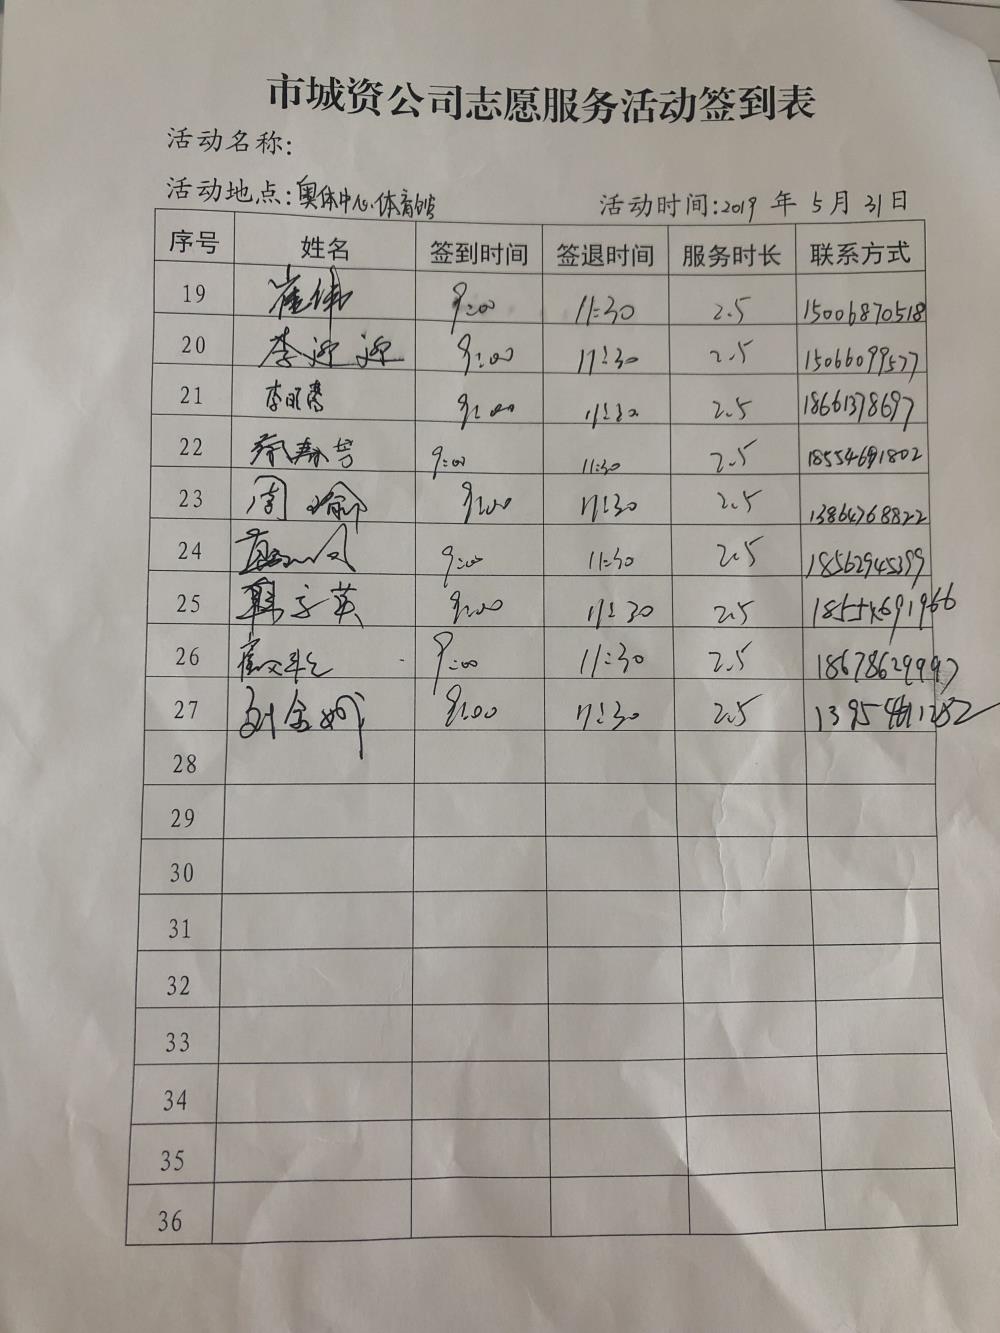 市城资公司志愿服务活动签到表
活动名称:
活动地点:奥体中心体育馆 活动时间:2019 年 5 月 31 日
序号 姓名 签到时间 签退时间 服务时长 联系方式
19 崔伟 9:00 11:30 2.5 15006870518
20 李迎迎 9:00 11:30 2.5 15066099577
21 9:00 11:30 2.5 18661378697
22 9:00 11:30 2.5 18554691802
23 周瑜 9:00 11:30 2.5 13864768822
24 9:00 11:30 2.5 18562945399
25 韩子英 9:00 11:30 2.5 18554691966
26 9:00 11:30 2.5 18678629997
27 9:00 11:30 2.5
28
29
30
31
32
33
34
35
36